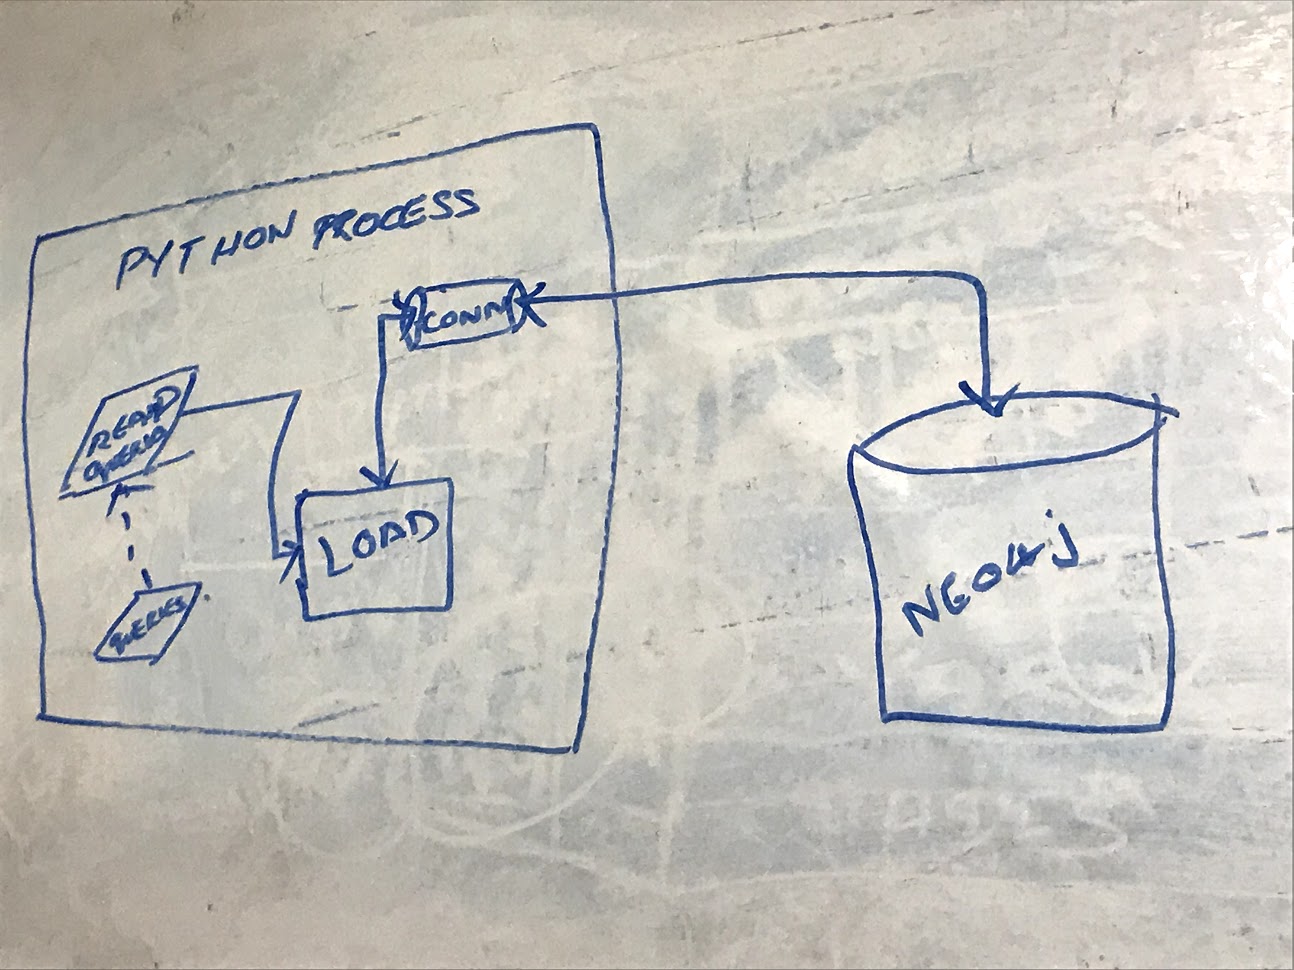 PYTHON PROCESS
CONN
READ
LOAD
QUERIES
NEO4j